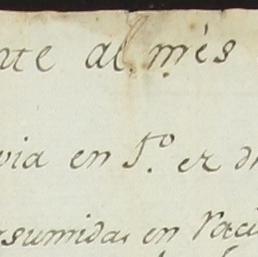 nte al mes
via en 1º er d
sumidas en Raci